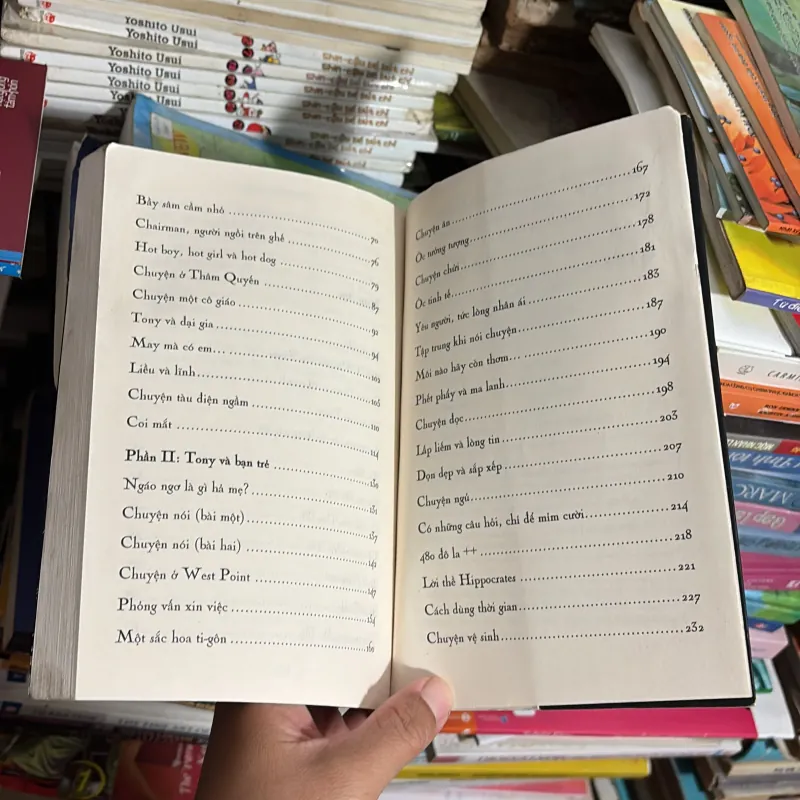 Yoshito Usui
Yoshito Usui
Yoshito Usui
Yoshito Usui
Yoshito Usui
Yoshito Usui
Bầy sâm cầm nhỏ 70
Chairman, người ngồi trên ghế 76
Hot boy, hot girl và hot dog 79
Chuyện ở Thâm Quyến 87
Chuyện một cô giáo 92
Tony và đại gia 94
May mà có em... 102
Liều và lĩnh 108
Chuyện tàu điện ngầm 110
Coi mắt 114
Phần II: Tony và bạn trẻ
Ngáo ngơ là gì hả mẹ? 131
Chuyện nói (bài một) 137
Chuyện nói (bài hai) 142
Chuyện ở West Point 147
Phỏng vấn xin việc 154
Một sắc hoa ti-gôn 160
Chuyện ăn 167
Óc tưởng tượng 172
Chuyện chửi 178
Óc tinh tế 181
Yêu người, tức lòng nhân ái 183
Tập trung khi nói chuyện 187
Môi nào hãy còn thơm... 190
Phét phẩy và ma lanh 194
Chuyện đọc 198
Lấp liếm và lòng tin 203
Dọn dẹp và sắp xếp 207
Chuyện ngủ 210
Có những câu hỏi, chỉ để mỉm cười 214
480 đô la ++ 218
Lời thề Hippocrates 221
Cách dùng thời gian 227
Chuyện vệ sinh 232